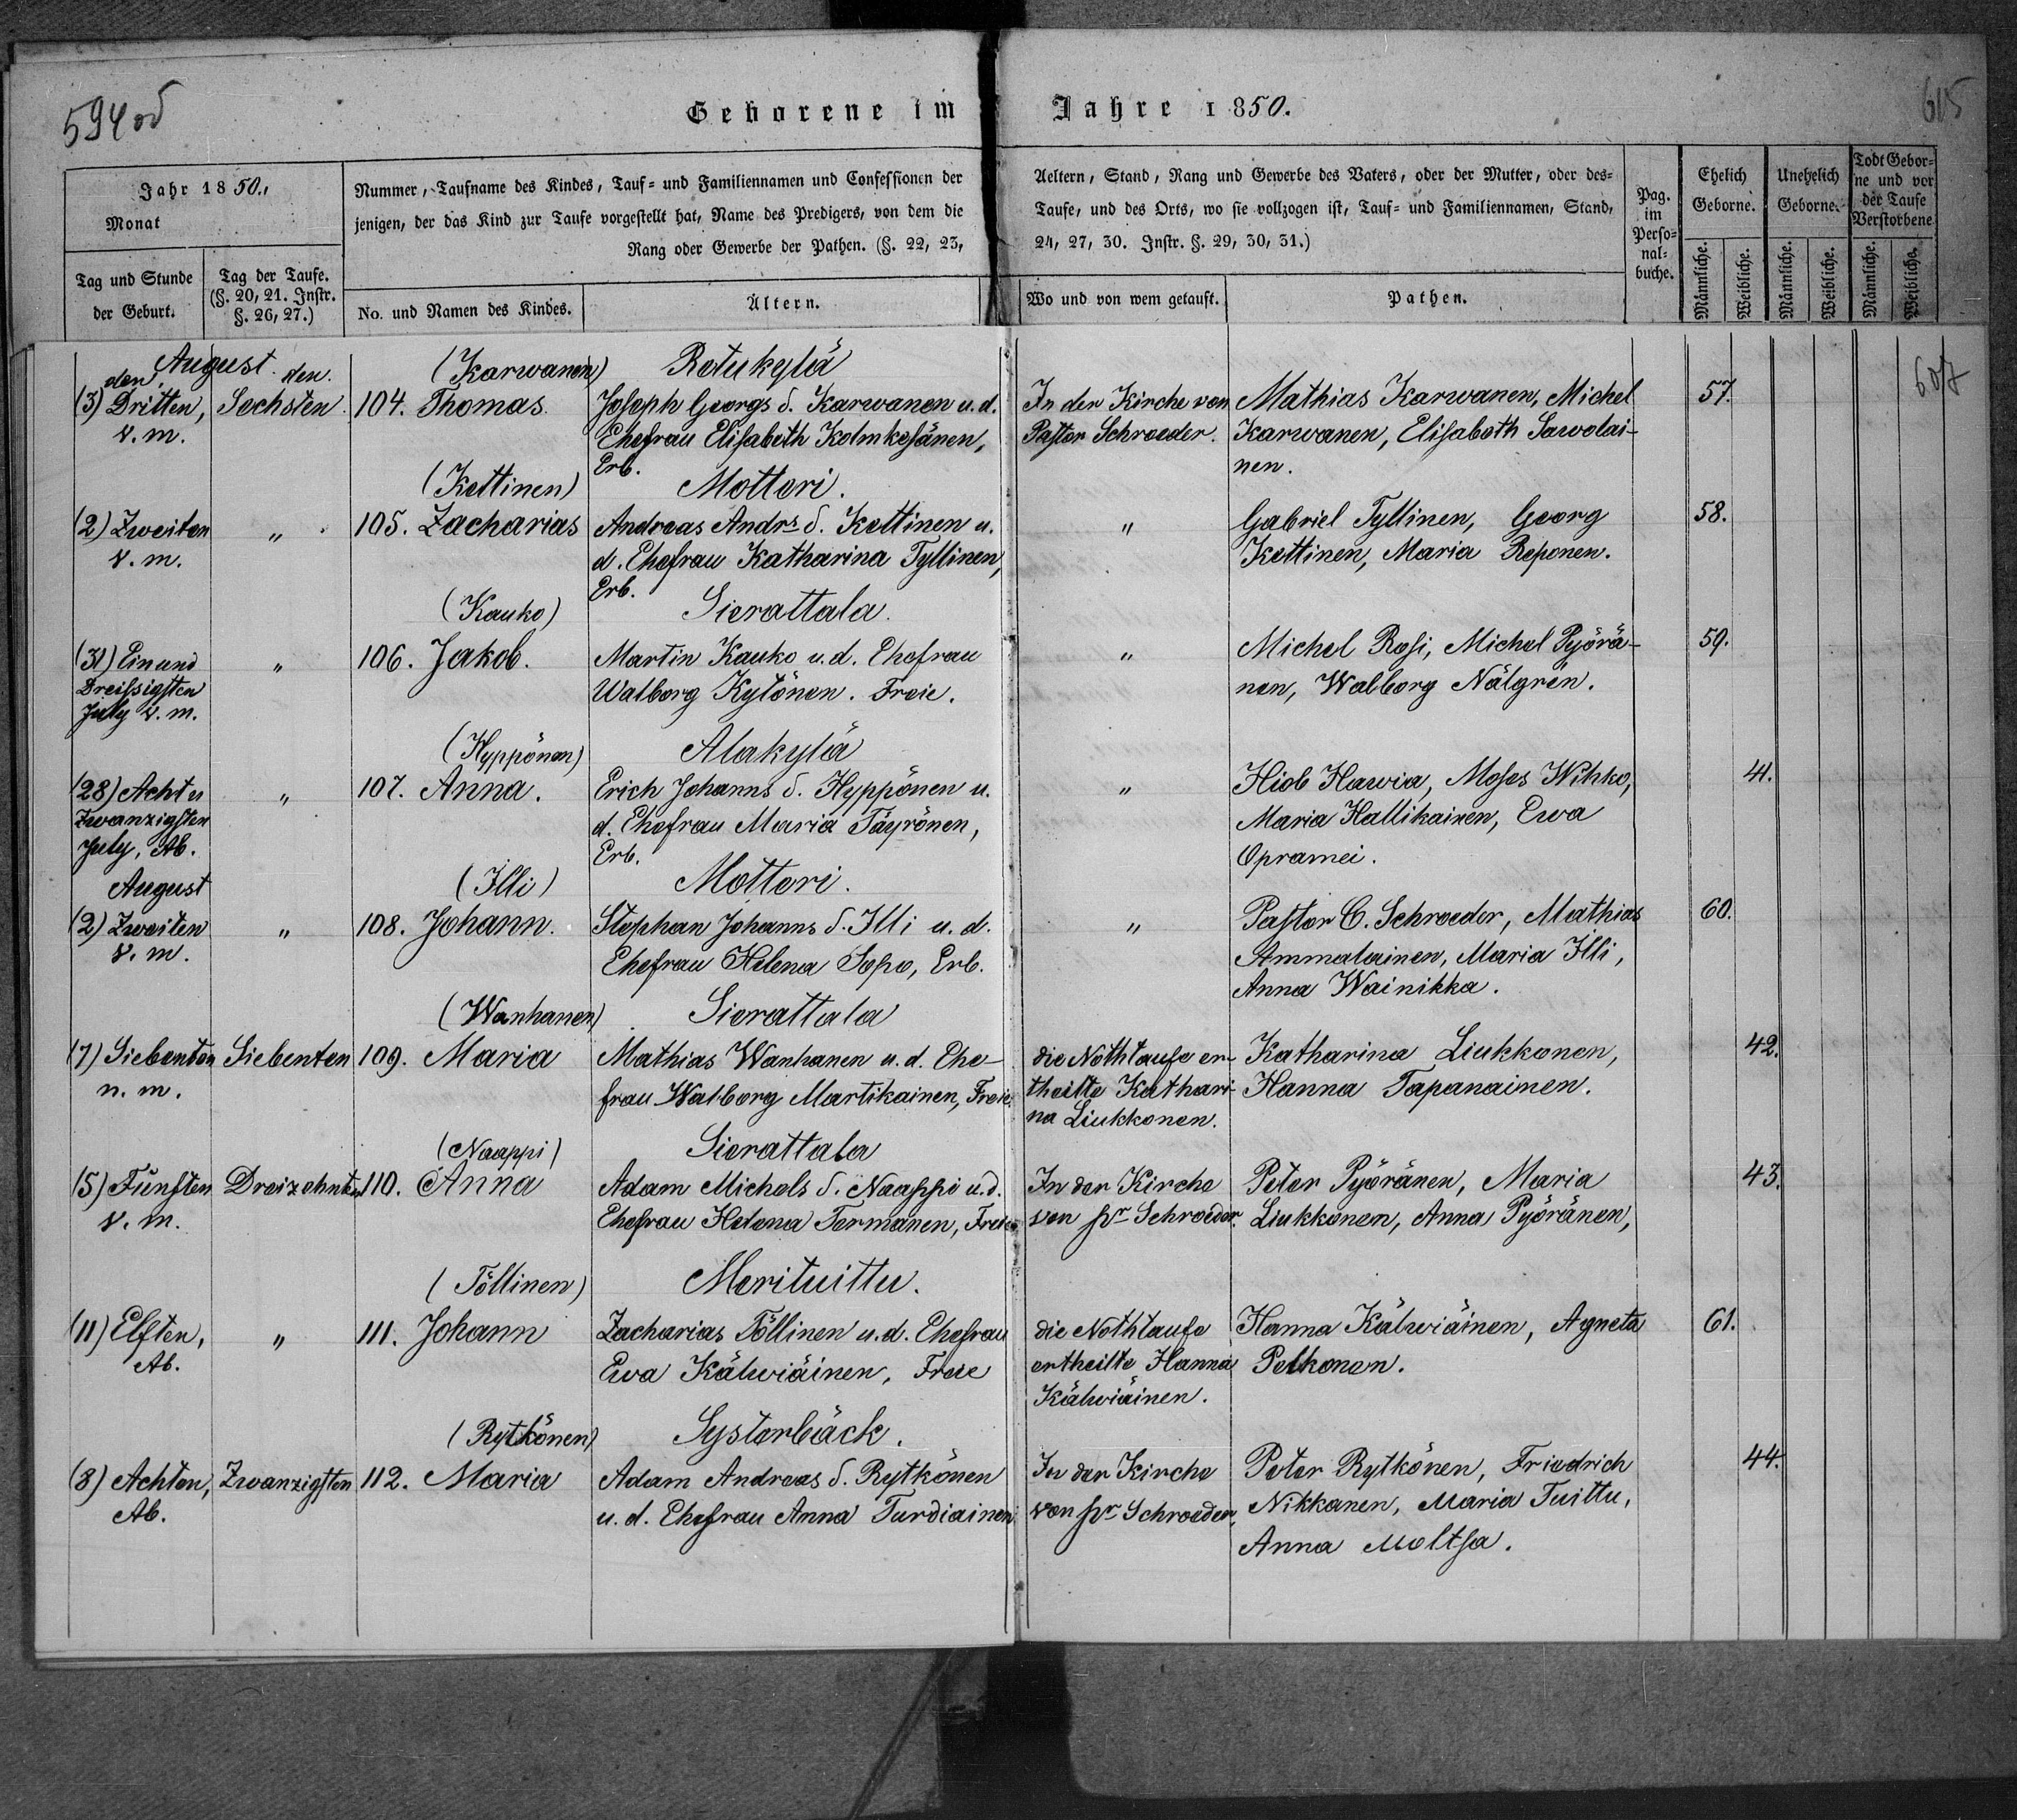 594 od
615
Geborene im Jahre 1850.
Jahr 1850.
Monat
Tag und Stunde der Geburt.
Tag der Taufe. (§. 20, 21. Instr. §. 26, 27.)
Nummer, Taufname des Kindes, Tauf= und Familiennamen und Confessionen der Aeltern, Stand, Rang und Gewerbe des Vaters, oder der Mutter, oder des=
jenigen, der das Kind zur Taufe vorgestellt hat, Name des Predigers, von dem die Taufe, und des Orts, wo sie vollzogen ist, Tauf= und Familiennamen, Stand,
Rang oder Gewerbe der Pathen. (§. 22, 23, 24, 27, 30. Instr. §. 29, 30, 31.)
No. und Namen des Kindes.
Ältern.
Wo und von wem getauft.
Pathen.
Pag. im Perso=nal=buche.
Ehelich Geborne.
Unehelich Geborne.
Todt Gebor=ne und vor der Taufe Verstorbene
Männliche. Weibliche. Männliche. Weibliche. Männliche. Weibliche.
607
August
den den
(Karwanen) Rotukylä
(3) Dritten, Sechsten. 104. Thomas. Joseph Georgs S. Karwanen u. d. In der Kirche von Mathias Karwanen, Michel 57.
v. m. Ehefrau Elisabeth Kolmkesänen, Pastor Schroeder. Karwanen, Elisabeth Sawolai-
Erb. nen.
(Kettinen) Mottori.
(2) Zweiten " 105. Zacharias Andreas Andrs S. Kettinen u. " Gabriel Tyllinen, Georg 58.
v. m. d. Ehefrau Katharina Tyllinen, Kettinen, Maria Reponen.
Erb.
(Kauko) Sierattala.
(31) Einund " 106. Jakob. Martin Kauko u. d. Ehefrau " Michel Rosi, Michel Pyörä- 59.
Dreissigsten Walborg Kytönen. Freie. nen, Walborg Nälgrén.
July v. m.
(Hyppönen) Alakylä
(28) Acht u " 107. Anna. Erich Johanns S. Hyppönen u. " Hiob Hawia, Moses Wihko, 41.
Zwanzigsten d. Ehefrau Maria Täyrönen, Maria Hallikainen, Ewa
July, Ab. Erb. Opramei.
August (Illi) Mottori.
(2) Zweiten " 108. Johann. Stephan Johanns S. Illi u. d. " Pastor C. Schroeder, Mathias 60.
v. m. Ehefrau Helena Sopo, Erb. Ammalainen, Maria Illi,
Anna Wainikka.
(Wanhanen) Sierattala
(7) Siebenten Siebenten 109. Maria Mathias Wanhanen u. d. Ehe- die Nothtaufe er- Katharina Liukkonen, 42.
n. m. frau Walborg Martikainen, Freie. theilte Kathari- Hanna Tapanainen.
na Liukkonen.
(Naappi) Sierattala
(5) Fünften Dreizehnten 110. Anna Adam Michels S. Naappi u. d. In der Kirche Peter Pyöränen, Maria 43.
v. m. Ehefrau Helena Termanen, Freie von Pr Schroeder. Liukkonen, Anna Pyöränen,
(Töllinen) Merituittu.
(11) Elften, " 111. Johann Zacharias Töllinen u. d. Ehefrau die Nothtaufe Hanna Kälwiäinen, Agneta 61.
Ab. Ewa Kälwiäinen, Freie ertheilte Hanna Pelkonen.
Kälwiäinen.
(Rytkönen) Systerbäck.
(8) Achten, Zwanzigsten 112. Maria Adam Andreas S. Rytkönen In der Kirche Peter Rytkönen, Friedrich 44.
Ab. u. d. Ehefrau Anna Turdiainen von Pr Schroeder. Nikkanen, Maria Tuittu,
Anna Moltsa.